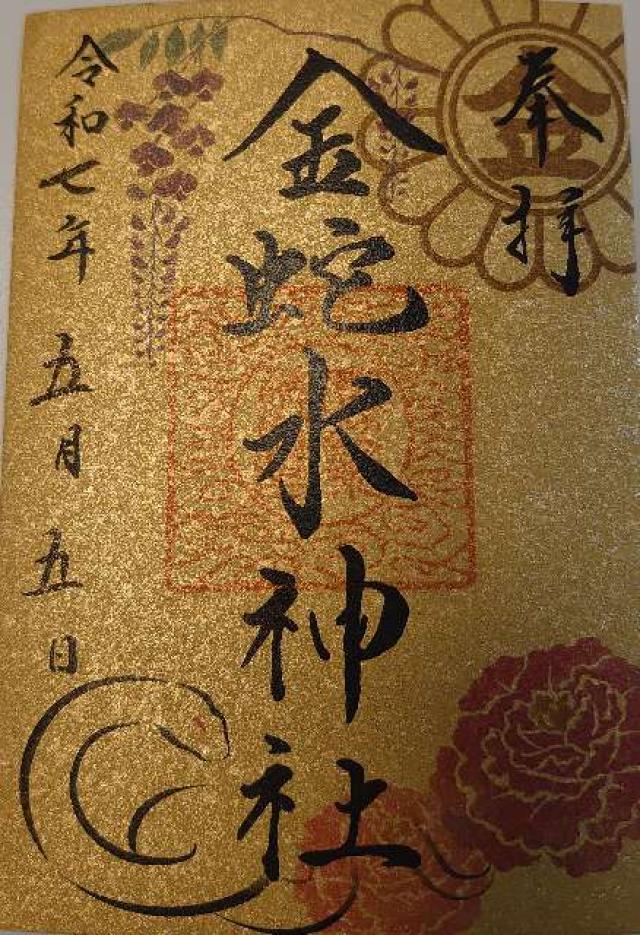 奉拝
金
金蛇水神社
令和七年五月五日